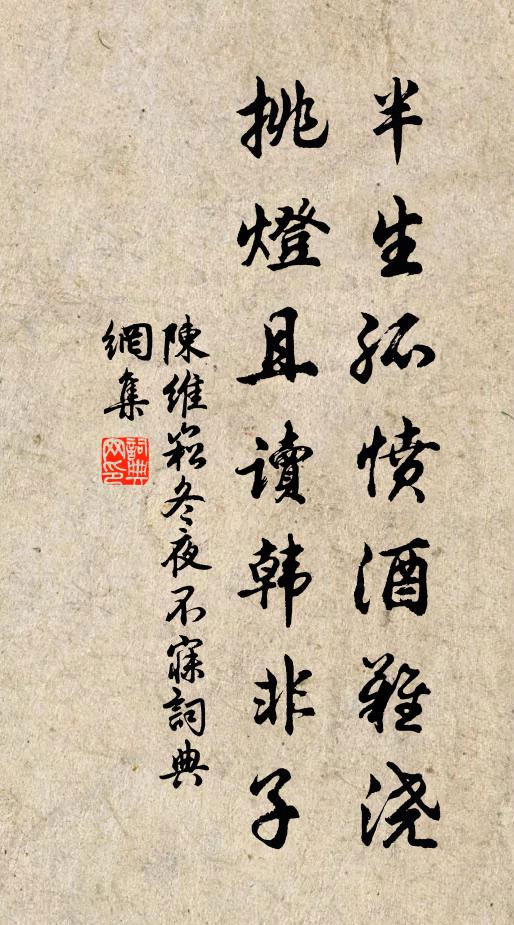 半生孤憤酒難浇
挑燈且讀韩非子
陳維崧冬夜不寐詞典
網集
詞典
网印